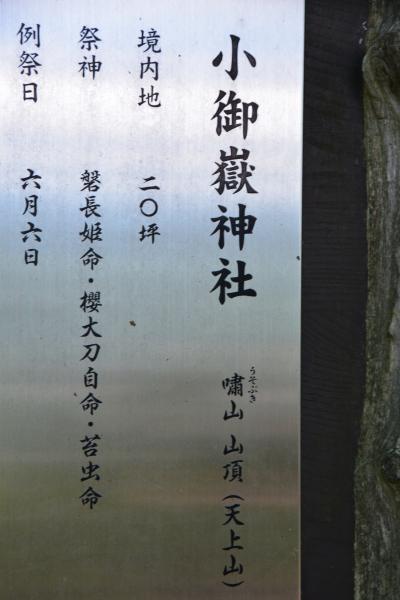 小御嶽神社　嘯山山頂（天上山）
うそぶき
境内地　二〇坪
祭神　磐長姫命・櫻大刀自命・苔虫命
例祭日　六月六日